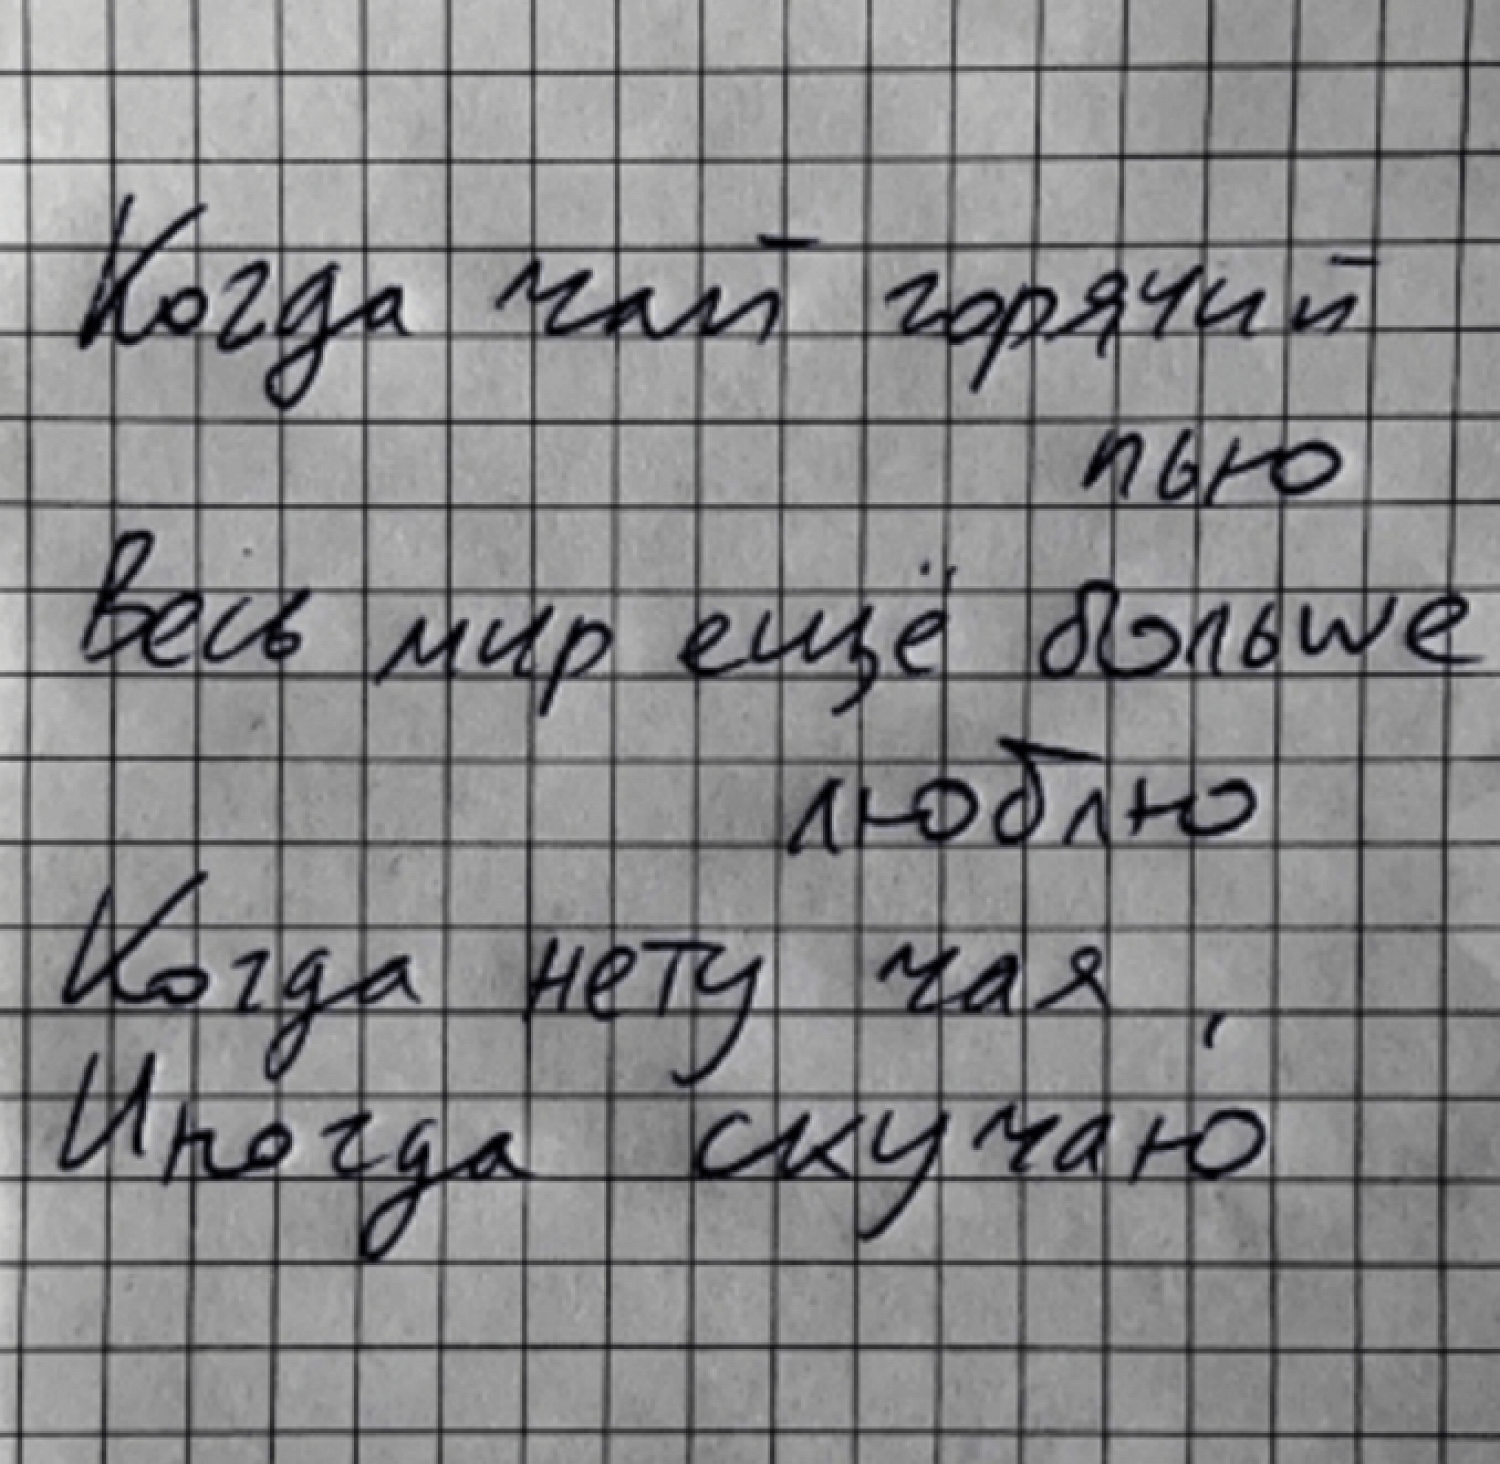 Когда чай горячий
пью
Весь мир ещё больше
люблю
Когда нету чая,
Иногда скучаю